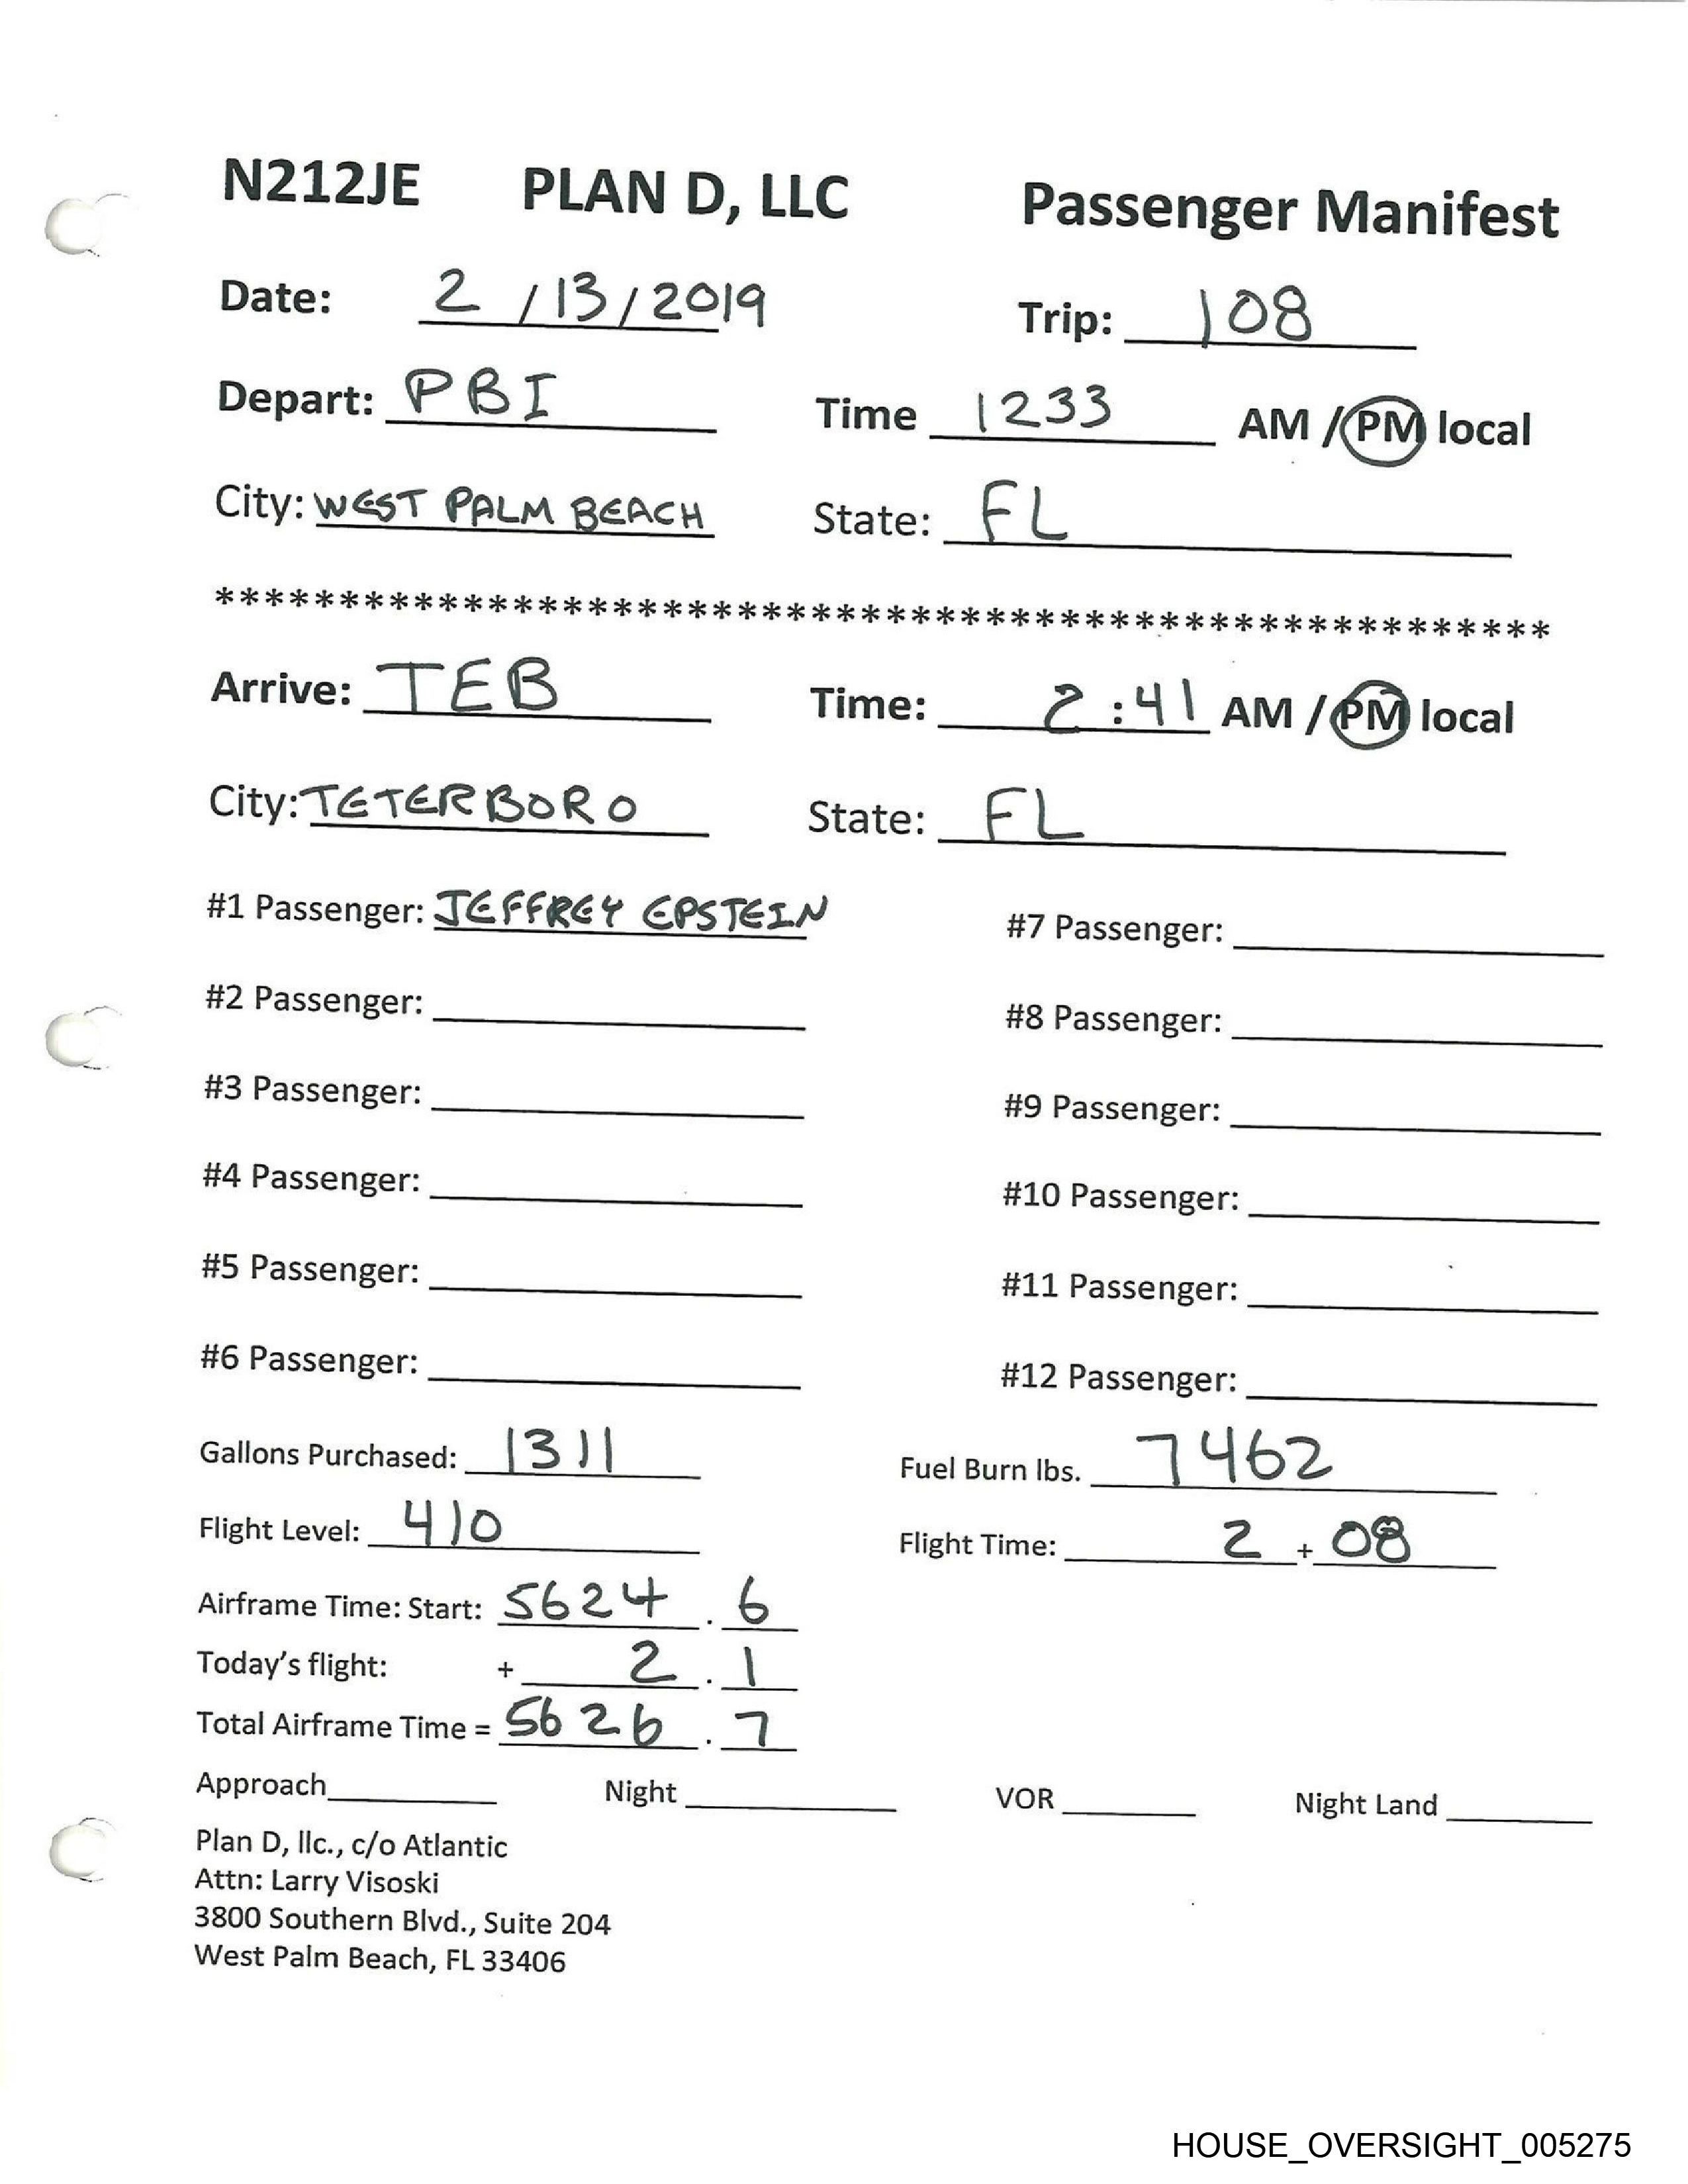 N212JE PLAN D, LLC Passenger Manifest
Date: 2 / 13 / 2019 Trip: 108
Depart: PBI Time 1233 AM / PM local
City: WEST PALM BEACH State: FL
******************************************************
Arrive: TEB Time: 2 : 41 AM / PM local
City: TETERBORO State: FL
#1 Passenger: JEFFREY EPSTEIN #7 Passenger:
#2 Passenger: #8 Passenger:
#3 Passenger: #9 Passenger:
#4 Passenger: #10 Passenger:
#5 Passenger: #11 Passenger:
#6 Passenger: #12 Passenger:
Gallons Purchased: 1311 Fuel Burn lbs. 7462
Flight Level: 410 Flight Time: 2 + 08
Airframe Time: Start: 5624 . 6
Today's flight: + 2 . 1
Total Airframe Time = 5626 . 7
Approach Night VOR Night Land
Plan D, llc., c/o Atlantic
Attn: Larry Visoski
3800 Southern Blvd., Suite 204
West Palm Beach, FL 33406
HOUSE_OVERSIGHT_005275